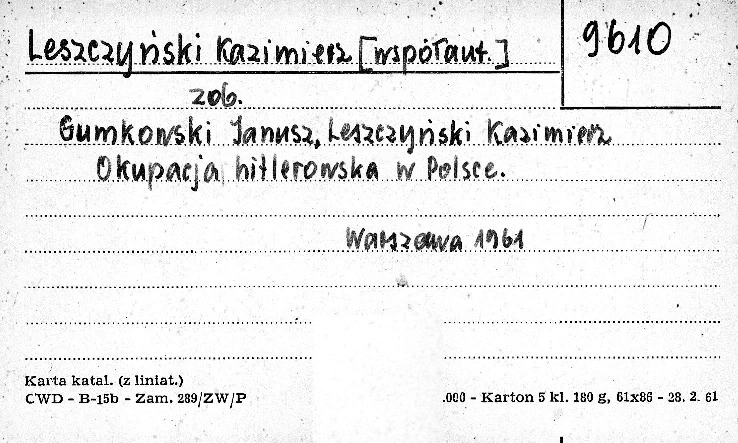 Leszczyński Kazimierz [współaut.]
9610
zob.
Gumkowski Janusz, Leszczyński Kazimierz
Okupacja hitlerowska w Polsce.
Warszawa 1961
Karta katal. (z liniat.)
CWD - B-15b - Zam. 289/ZW/P
.000 - Karton 5 kl. 180 g, 61x86 - 28. 2. 61